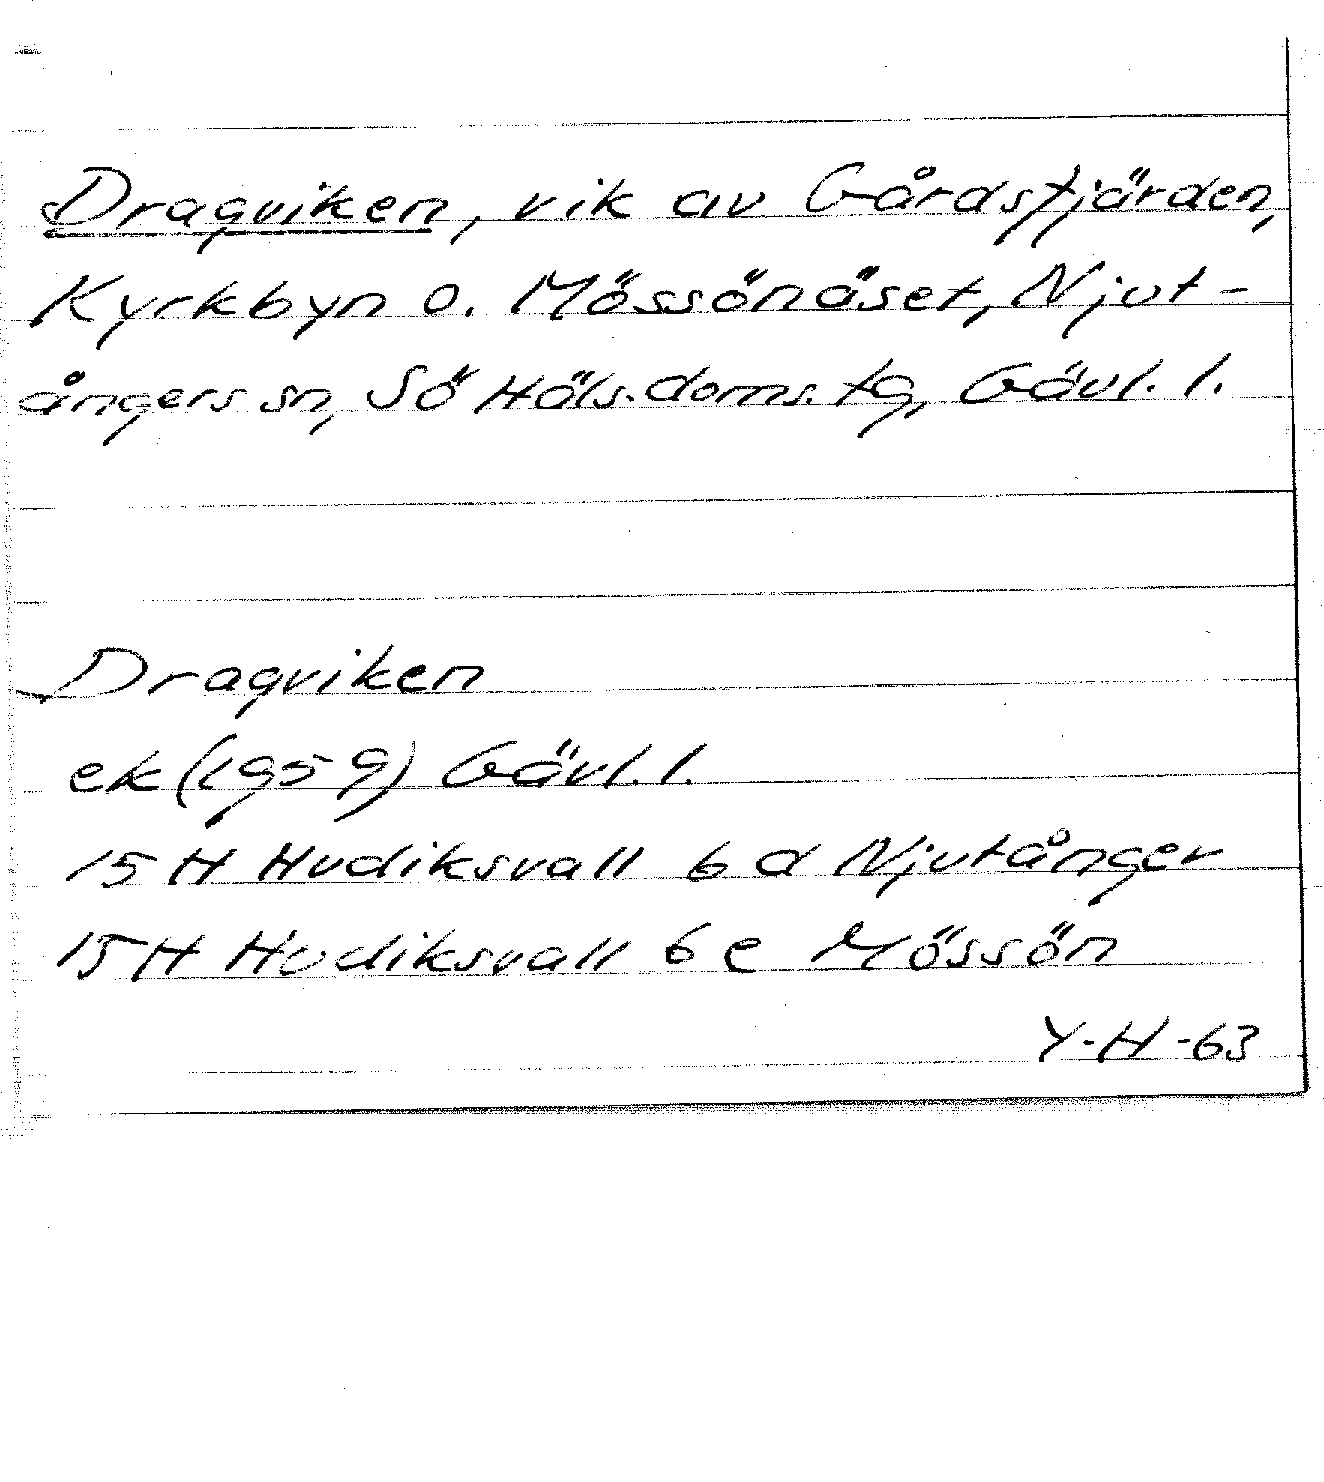 Dragviken, vik av Gårdsfjärden,
Kyrkbyn o. Mössönäset, Njut-
ångers sn, Sö Häls. doms. tg, Gävl. l.
Dragviken
ek (1959) Gävl. l.
15 H Hudiksvall 6 d Njutånger
15 H Hudiksvall 6 e Mössön
Y-H-63